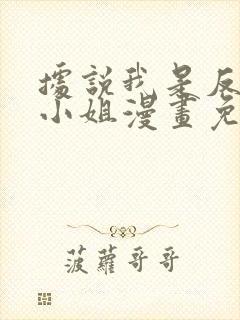 據說我是反
小姐漫畫免
菠蘿哥哥